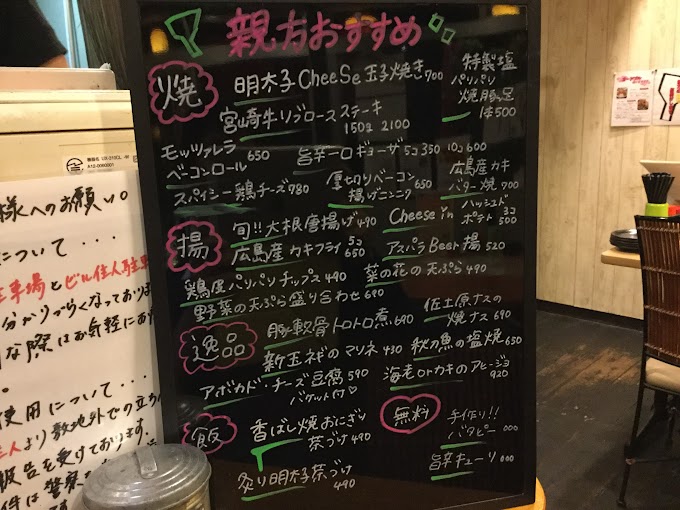 親方おすすめ
焼
明太子CheeSe玉子焼き700
特製塩
パリパリ
焼豚足
1本500
宮崎牛リブロースステーキ
150g 2100
モッツァレラ
ベーコンロール 650
旨辛一口ギョーザ 5コ350 10コ600
スパイシー鶏チーズ780
厚切りベーコン
揚げニンニク 650
広島産カキ
バター焼 700
揚
旬!!大根唐揚げ490
Cheese in ハッシュド
ポテト 3コ
500
広島産カキフライ 5コ
690
アスパラBeer揚 520
鶏皮パリパリチップス490
菜の花の天ぷら490
野菜の天ぷら盛り合わせ690
逸品
豚軟骨トロトロ煮690
佐土原ナスの
焼ナス690
新玉ネギのマリネ430
秋刀魚の塩焼650
アボカド・チーズ豆腐590
バケット付♡
海老orカキのアヒージョ
920
飯
香ばし焼おにぎり
茶づけ490
炙り明太子茶づけ
490
無料
手作り!!
バタピー 000
旨辛キューリ 000
様へのお願い。
について・・・
駐車場とビル住人駐車
分かりづらくなっておりま
な際はお気軽にお
使用について・・・
より敷地外での立ち
報告を受けております。
件は警察